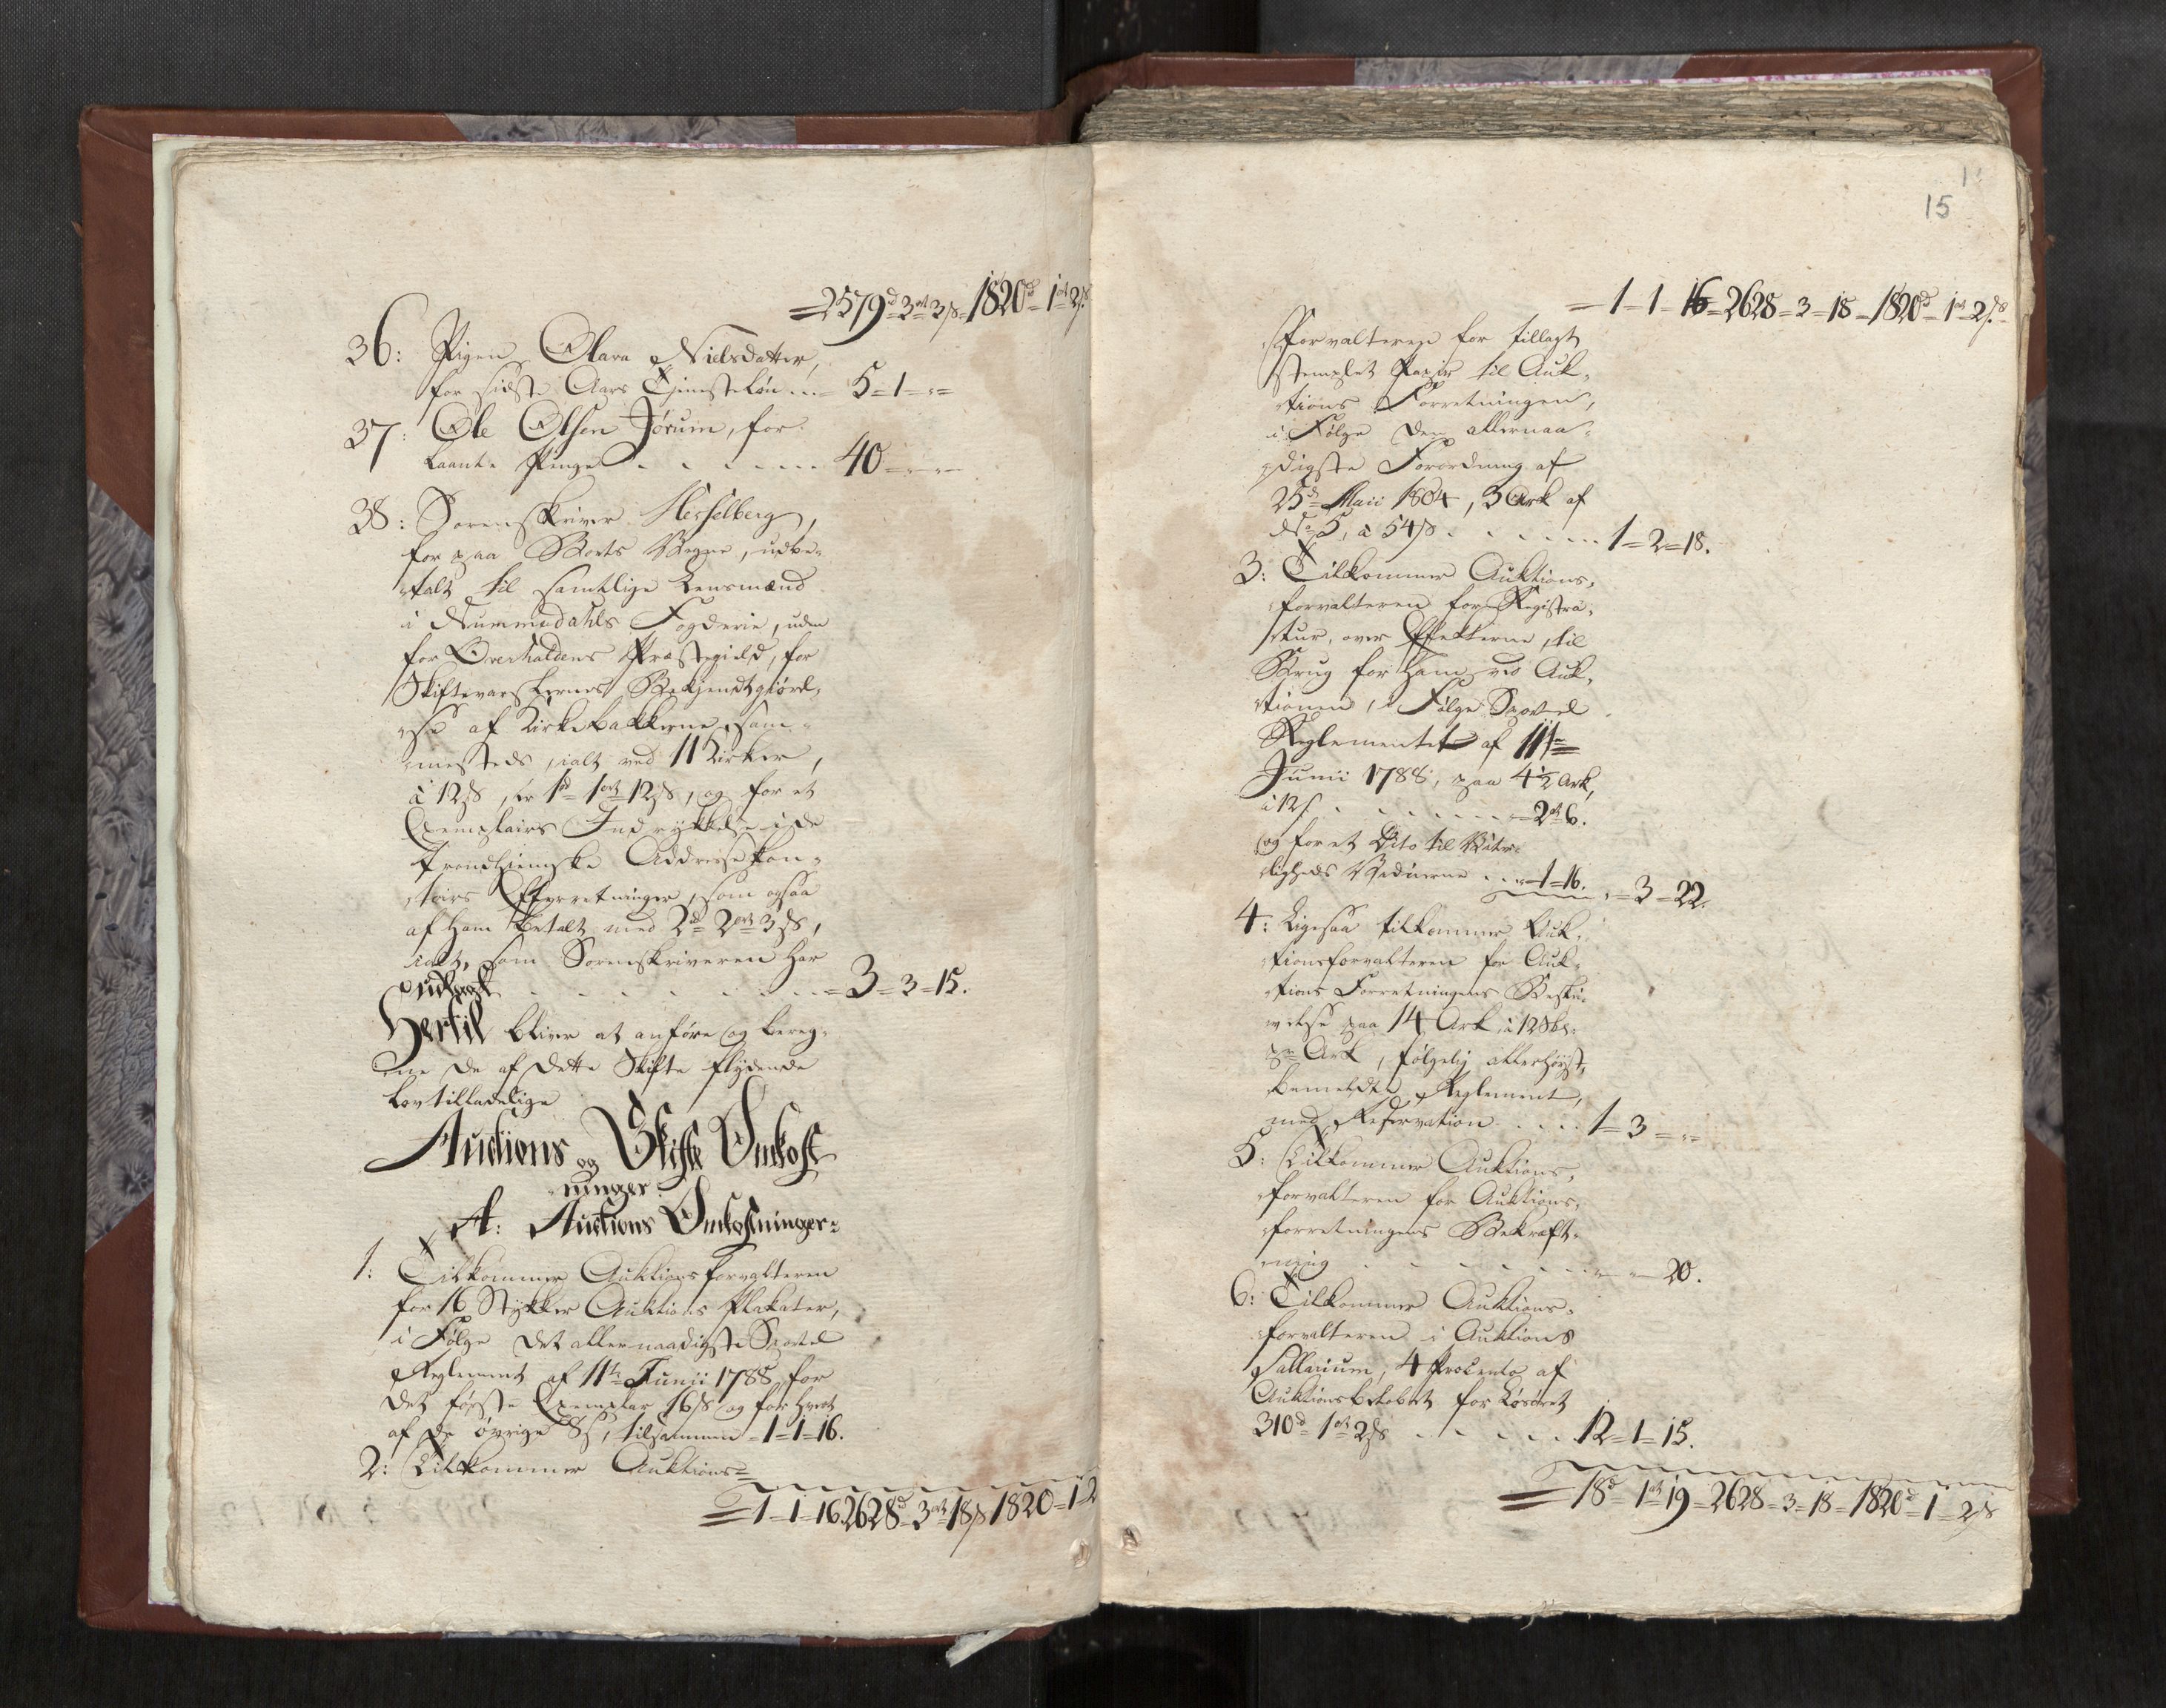 =2579d=3ort=3ß=1820d=1ort=2ß
36: Pigen Olava Nielsdatter,
for sidste Aars Tjenesteløn ... 5=1="=
37: Ole Olsen Jørum, for
laante Penge - - - ... 40="="=
38: Sorenskriver Hesselberg,
for paa Boets Vegne, udbe-
talt til samtlige Lensmænd
i Nummedahls Fogderie, uden
for Overhaldens Præstegield, for
Skiftevarslernes Bekjendtgiørel-
se af Kirkebakkerne sam-
mesteds, ialt ved 11 Kirker,
à 12ß, er 1d 1ort 12ß, og for et
Exemplairs Indrykkelse i de
trondhiemske Addressekon-
toirs Efterretninger, som ogsaa
af ham betalt med 2d 2ort 3ß,
ialt, som Sorenskriveren har
udlagt - - - - - - =3=3=15.
Hertil bliver at anføre og bereg-
ne de af dette Skifte flydende
lovtilladelige
Auctions og Skifte Omkost-
ninger.
A: Auctions Omkostninger:
1: Tilkommer Auktionsforvalteren
for 16 Stykker Auktions Plakater,
i Følge det allernaadigste Sportel
Reglement af 11te Junii 1788, for
det første Exemplar 16ß og for hvert
af de øvrige 8ß, tilsammen =1=1=16.
2: Tilkommer Auktions=
=1=1=16.2628d=3ort=18ß 1820=1=2
15
=1=1=16=2628=3=18=1820d=1ort=2ß
Forvalteren for tillagt
stemplet Papir til Auk-
tions Forretningen,
i Følge den allernaa-
digste Forordning af
25de Maii 1804, 3 Ark af
No 5, à 54ß - - - ... 1=2=18.
3: Tilkommer Auktions-
forvalteren for Registra-
tur, over Effekterne, til
Brug for ham ved Auk-
tionen, i Følge Sportel
Reglementet af 11te
Junii 1788, paa 4½ Ark,
à 12ß - - - - =2ort 6.
og for et Dito til Vitter-
ligheds Vidnerne . . . =1=16. "=3=22.
4: Ligesaa tilkommer Auk-
tionsforvalteren for Auk-
tions Forretningens Beskri-
velse paa 14 Ark, à 12 Sk:
pr Ark, følgelig allerhøyst-
bemeldte Reglement,
med Reservation . . . . 1=3="=
5: Tilkommer Auktions-
forvalteren for Auktions-
forretningens Bekræft-
ning - - - - - "="=20.
6: Tilkommer Auktions-
forvalteren i Auktions
Sallarium, 4 Procento af
Auktionsbeløbet for Løsøret
310d 1ort 2ß - - - - . 12=1=15.
=18d=1ort 19=2628=3=18=1820d=1=2ß